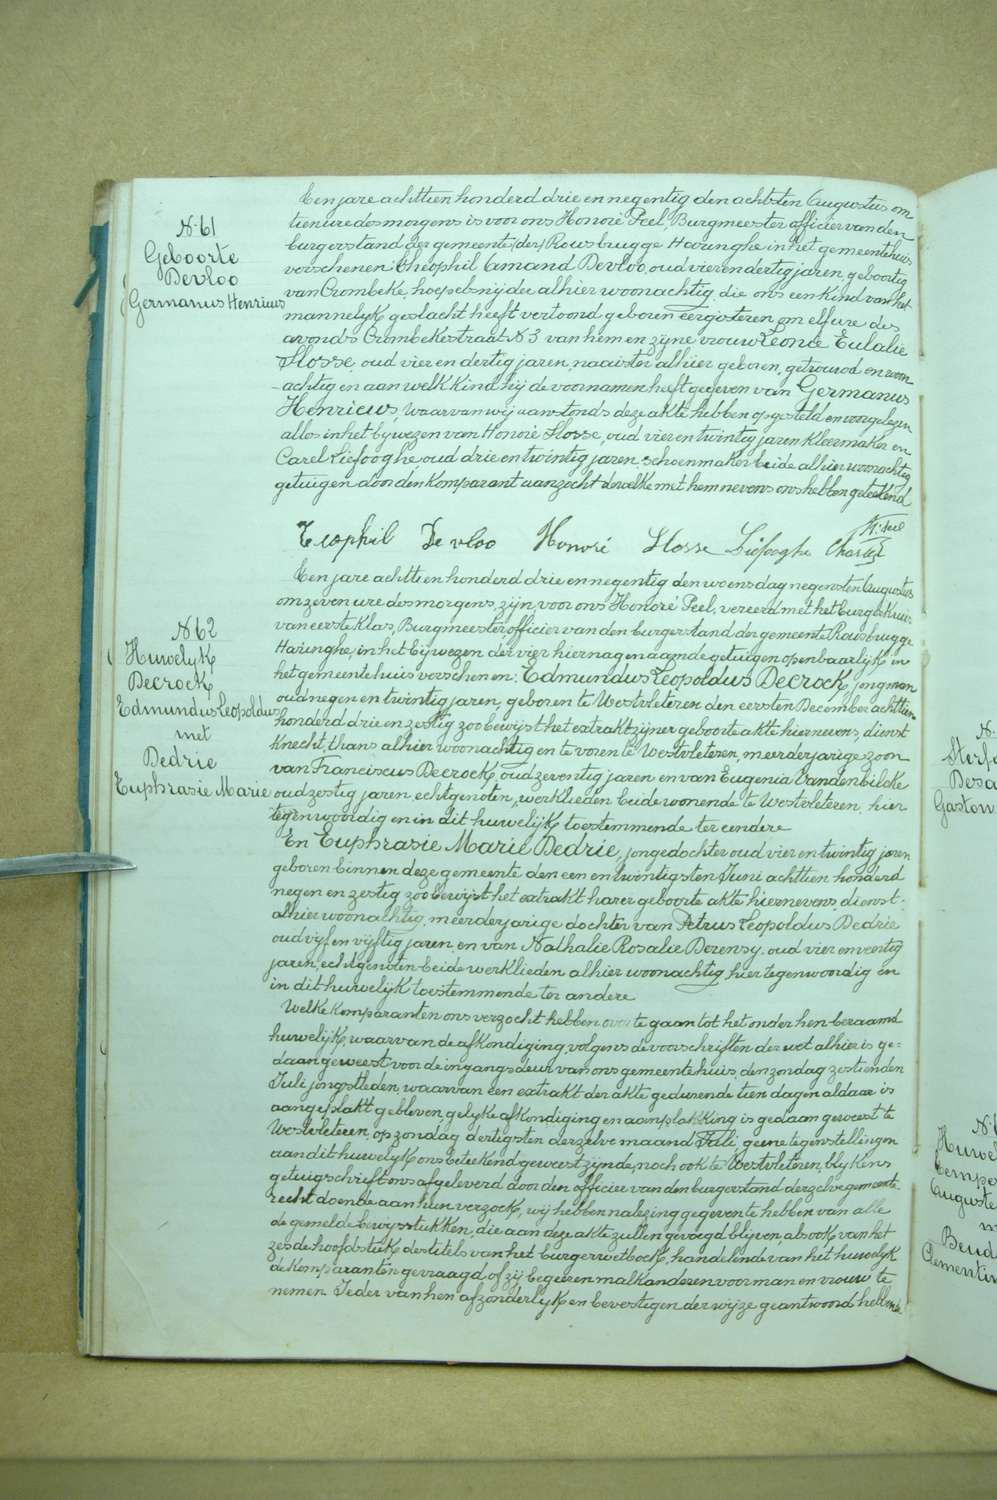 N 61
Geboorte
Devloo
Germanus Henricus
Een jare achttien honderd drie en negentig den achtsten Augustus om
tien ure des morgens is voor ons Honoré Peel, Burgmeester officier van den
burgerstand der gemeente (der) Rousbrugge Haringhe in het gemeentehuis
verschenen Theophil Amand Devloo, oud vier en dertig jaren, geboortig
van Crombeke, hoepelsnijder alhier woonachtig, die ons een kind van het
mannelijk geslacht heeft vertoond geboren eergisteren om elf ure des
avonds Crombekestraat N 3 van hem en zijne vrouw Leonie Eulalie
Slosse, oud vier en dertig jaren, naaister alhier geboren, getrouwd en woon-
-achtig en aan welk kind hij de voornamen heeft gegeven van Germanus
Henricus, waarvan wij aanstonds deze akte hebben opgesteld en voorgelezen
alles in het bijwezen van Honoré Slosse, oud vier en twintig jaren kleermaker en
Carel Liefooghe oud drie en twintig jaren, schoenmaker beide alhier woonachtig
getuigen door den komparant aanzocht dewelke met hem nevens ons hebben geteekend
Teophil Devloo Honoré Slosse Liefooghe Charles
H. Peel
N 62
Huwelijk
Decrock
Edmundus Leopoldus
met
Dedrie
Euphrasie Marie
Een jare achttien honderd drie en negentig den woensdag negensten Augustus
om zeven ure des morgens, zijn voor ons Honoré Peel, vereerd met het burgerkruis
van eerste klas, Burgmeester officier van den burgerstand der gemeente Rousbrugge
Haringhe, in het bijwezen der vier hiernagenaamde getuigen openbaarlijk in
het gemeentehuis verschenen: Edmundus Leopoldus Decrock, jongman
oud negen en twintig jaren, geboren te Westvleteren den eersten December achttien
honderd drie en zestig zoo bewijst het extrakt zijner geboorte akte hiernevens, dienst
knecht, thans alhier woonachtig en te voren te Westvleteren, meerderjarige zoon
van Franciscus Decrock, oud zeventig jaren en van Eugenia Vandenbilcke
oud zestig jaren, echtgenoten, werklieden beide wonende te Westvleteren, hier
tegenwoordig en in dit huwelijk toestemmende ter eendere
En Euphrasie Marie Dedrie, jongedochter oud vier en twintig jaren
geboren binnen deze gemeente den een en twintigsten Juni achttien honderd
negen en zestig zoo bewijst het extrakt harer geboorte akte hiernevens, dienst-
alhier woonachtig, meerderjarige dochter van Petrus Leopoldus Dedrie
oud vijf en vijftig jaren en van Nathalie Rosalie Derensy, oud vier en veertig
jaren, echtgenoten beide werklieden alhier woonachtig hier tegenwoordig en
in dit huwelijk toestemmende ter andere
Welke komparanten ons verzocht hebben over te gaan tot het onder hen beraamd
huwelijk, waarvan de afkondiging volgens de voorschriften der wet alhier is ge-
daan geweest voor de ingangsdeur van ons gemeentehuis, den zondag zestienden
Juli jongstleden, waarvan een extrakt der akte gedurende tien dagen aldaar is
aangeplakt gebleven, gelijke afkondiging en aanplakking is gedaan geweest te
Westvleteren, op zondag dertigsten derzelve maand Juli geene tegenstellingen
aan dit huwelijk ons beteekend geweest zijnde, noch ook te Westvleteren, blijkens
getuigschrift ons afgeleverd door den officier van den burgerstand derzelve gemeente
recht doende aan hun verzoek, wij hebben nalezing gegeven te hebben van alle
de gemelde bewijsstukken, die aan deze akte zullen gevoegd blijven, als ook van het
zesde hoofdstuk des titels van het burgerwetboek, handelende van het huwelijk
de komparanten gevraagd of zij begeeren malkanderen voor man en vrouw te
nemen. Ieder van hen afzonderlijk en bevestigen der wijze geantwoord hebbende
N.
Gaston
N. 6
Auguste